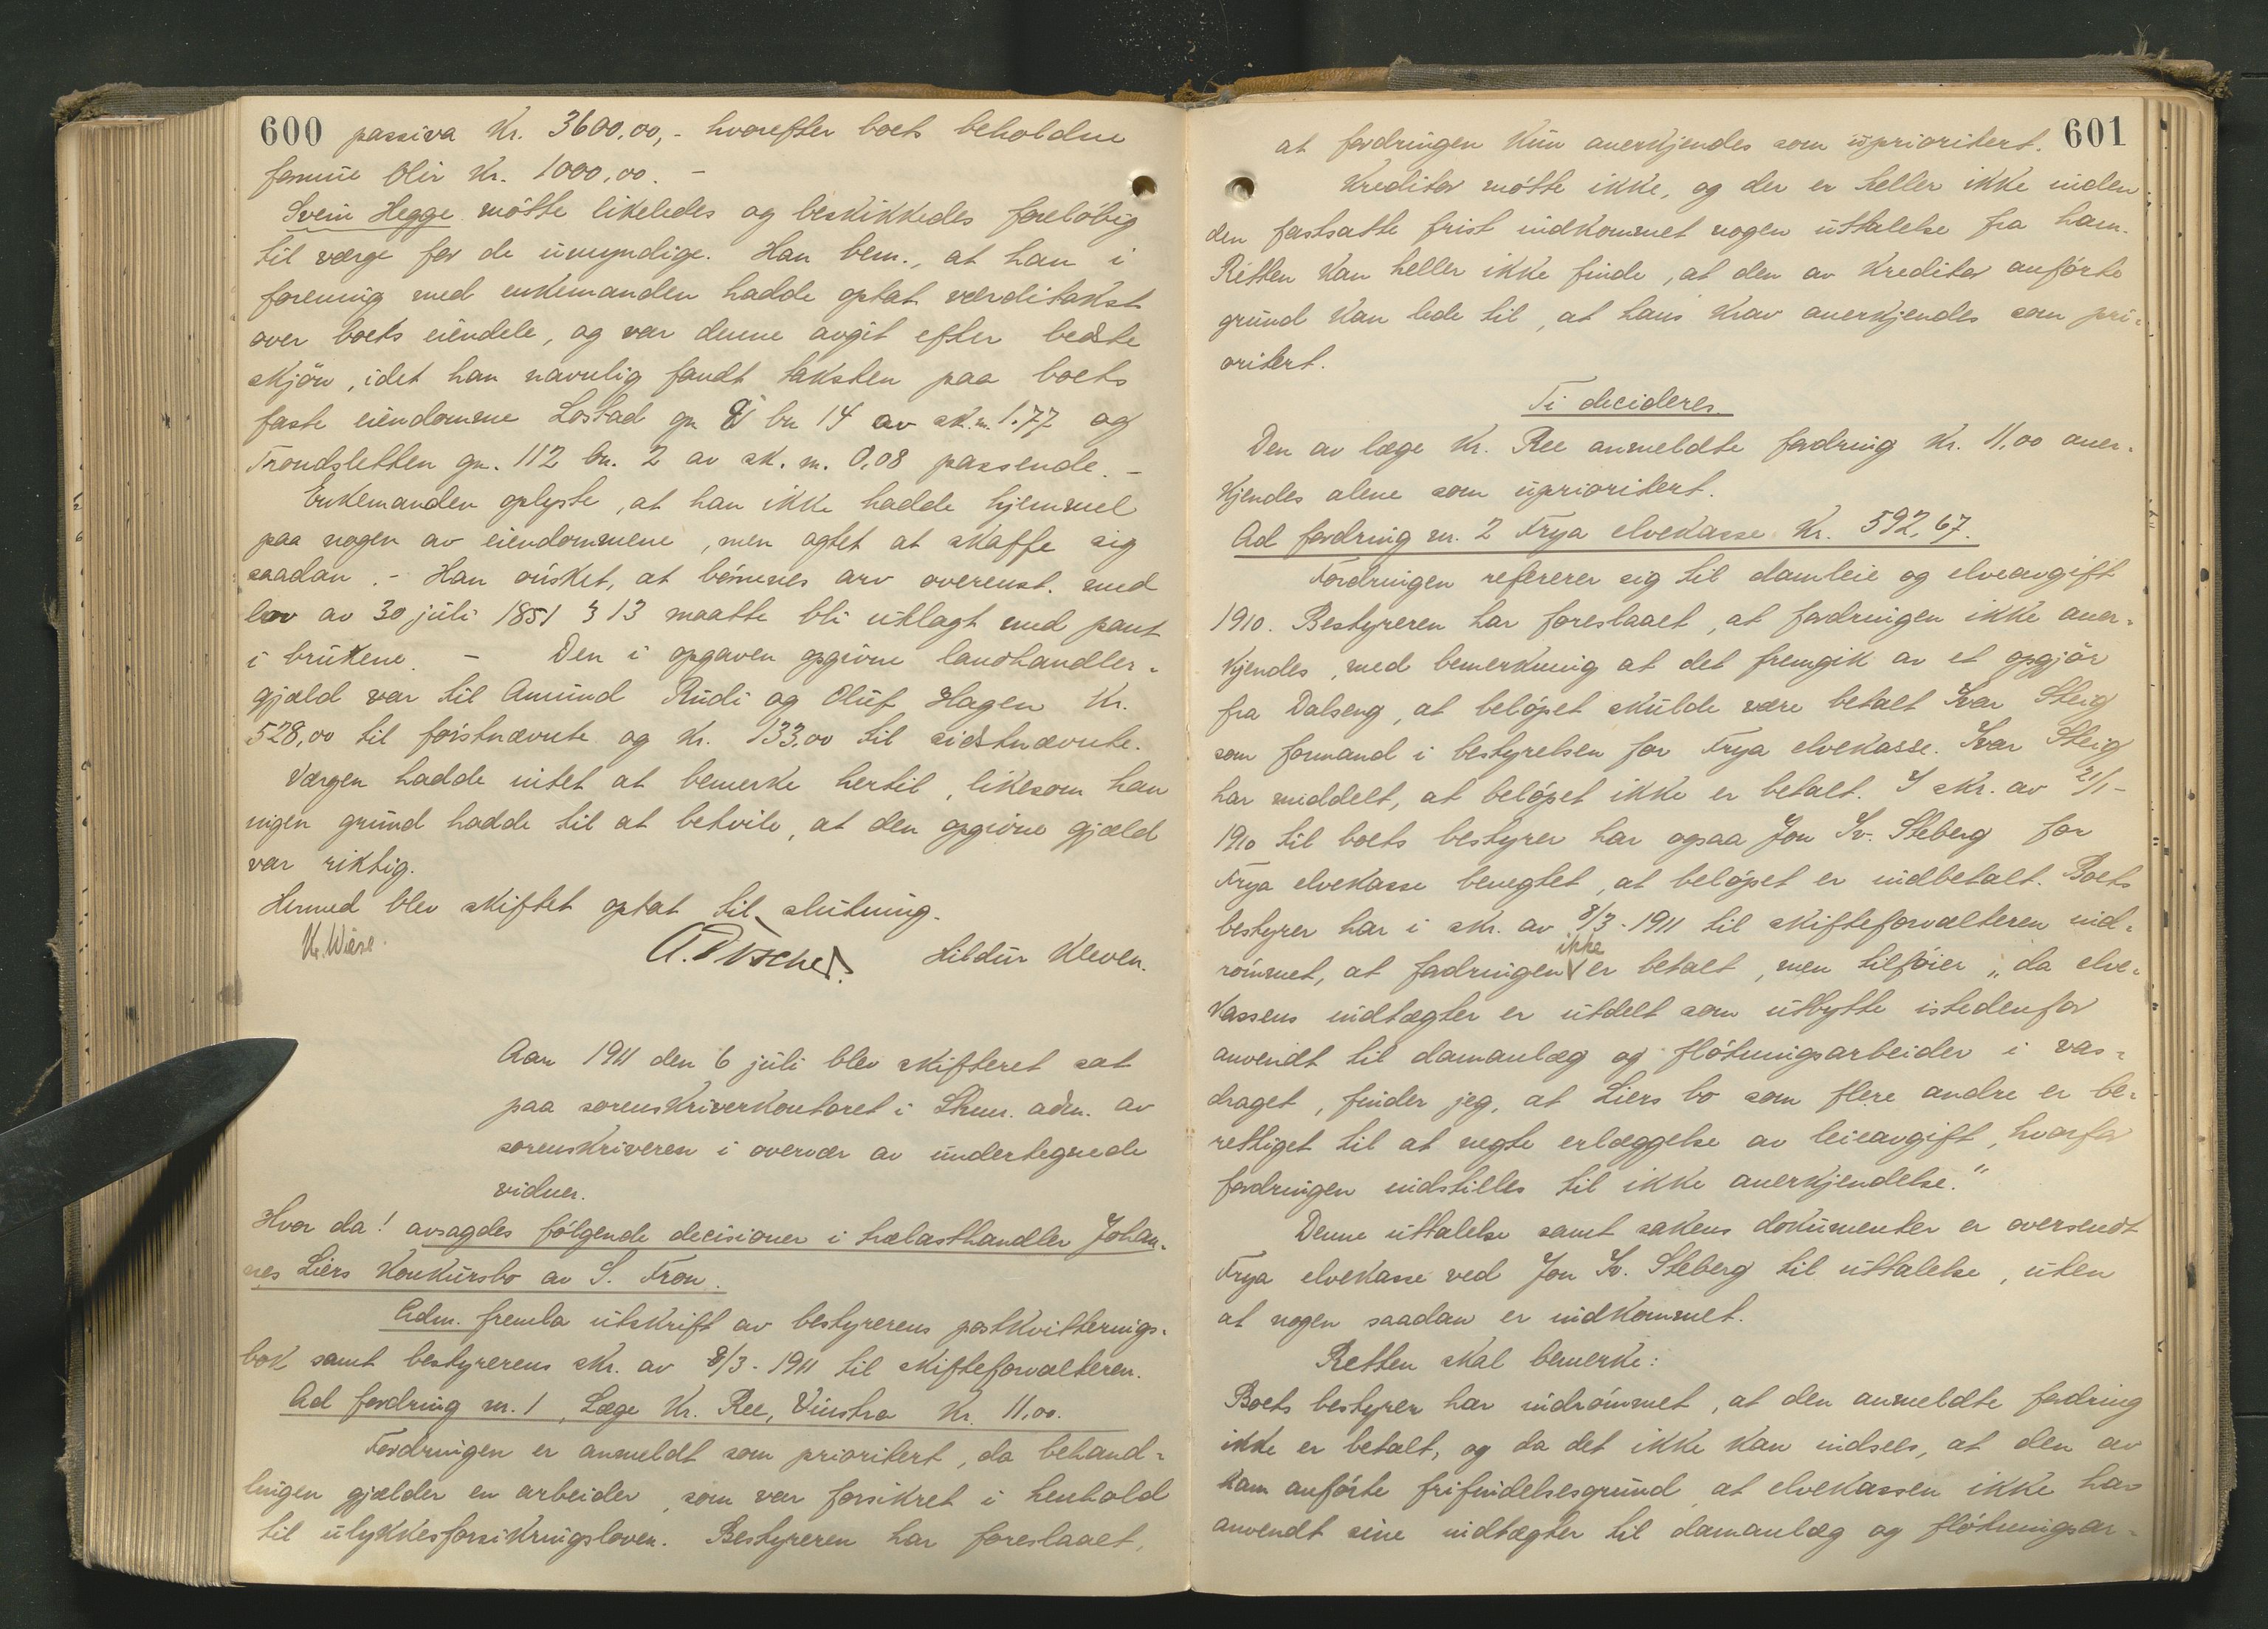 600 passiva Kr. 3600,00,- hvorefter boets beholdne
formue blir Kr. 1000,00. -
Svein Hegge møtte likeledes og beskikkedes foreløbig
til værge for de umyndige. Han bem., at han i
forening med enkemanden hadde optat værditakst
over boets eiendele, og var denne avgit efter bedste
skjøn, idet han navnlig fandt taksten paa boets
faste eiendomme Lostad gn bn 14 av sk.m. 1.77 og
Trondsletten gn. 112 bn. 2 av sk. m. 0,08 passende. -
Enkemanden oplyste, at han ikke hadde hjemmel
paa nogen av eiendommene, men agtet at skaffe sig
saadan. - Han ønsket, at børnenes arv overenst. med
lov av 30 juli 1851 § 13 maatte bli utlagt med pant
i brukene. - Den i opgaven opgivne landhandler-
gjæld var til Amund Rudi og Oluf Hagen Kr.
528,00 til førstnævnte og Kr. 133,00 til sidstnævnte.
Værgen hadde intet at bemerke hertil, likesom han
ingen grund hadde til at betvile, at den opgivne gjæld
var riktig.
Hermed blev skiftet optat til slutning.
Kr. Wiese. A. Fischer. Hildur Kleven.
Aar 1911 den 6 juli blev skifteret sat
paa sorenskriverkontoret i adm. av
sorenskriveren i overvær av undertegnede
vidner.
Hvor da! avsagdes følgende decisioner i trælasthandler Johan-
nes Liers konkursbo av S. Fron.
Adm. fremla utskrift av bestyrerens postkvitterings-
bok samt bestyrerens skr. av 8/3 - 1911 til skifteforvalteren.
Ad fordring nr. 1, Læge Kr. Ree, Vinstra Kr. 11,00.
Fordringen er anmeldt som prioritert, da behand-
lingen gjælder en arbeider, som var forsikret i henhold
til ulykkesforsikringsloven. Bestyreren har foreslaaet,
601
at fordringen kun anerkjendes som uprioritert.
Kreditor møtte ikke, og der er heller ikke inden
den fastsatte frist indkommet nogen uttalelse fra ham.
Retten kan heller ikke finde, at den av kreditor anførte
grund kan lede til, at hans krav anerkjendes som pri-
oritert.
Ti decideres.
Den av læge Kr. Ree anmeldte fordring Kr. 11,00 aner-
kjendes alene som uprioritert.
Ad fordring nr. 2 Frya elvekasse Kr. 592,67.
Fordringen refererer sig til damleie og elveavgift
1910. Bestyreren har foreslaaet, at fordringen ikke aner-
kjendes, med bemerkning at det fremgik av et opgjør
fra Dalseng, at beløpet skulde være betalt Ivar Steig
som formand i bestyrelsen for Frya elvekasse. Ivar Steig
har meddelt, at beløpet ikke er betalt. I skr. av 21/1 -
1910 til boets bestyrer har ogsaa Jon Iv. Steberg for
Frya elvekasse benegtet, at beløpet er indbetalt. Boets
bestyrer har i skr. av 8/3 - 1911 til skifteforvalteren ind-
rømmet, at fordringen ikke er betalt, men tilføier „da elve-
kassens indtægter er utdelt som utbytte istedenfor
anvendt til damanlæg og fløtningsarbeider i vas-
draget, finder jeg, at Liers bo som flere andre er be-
rettiget til at negte erlæggelse av leieavgift, hvorfor
fordringen indstilles til ikke anerkjendelse."
Denne uttalelse samt sakens dokumenter er oversendt
Frya elvekasse ved Jon Iv. Steberg til uttalelse, uten
at nogen saadan er indkommet.
Retten skal bemerke:
Boets bestyrer har indrømmet, at den anmeldte fordring
ikke er betalt, og da det ikke kan indsees, at den av
ham anførte frifindelsesgrund at elvekassen ikke har
anvendt sine indtægter til damanlæg og fløtningsar-